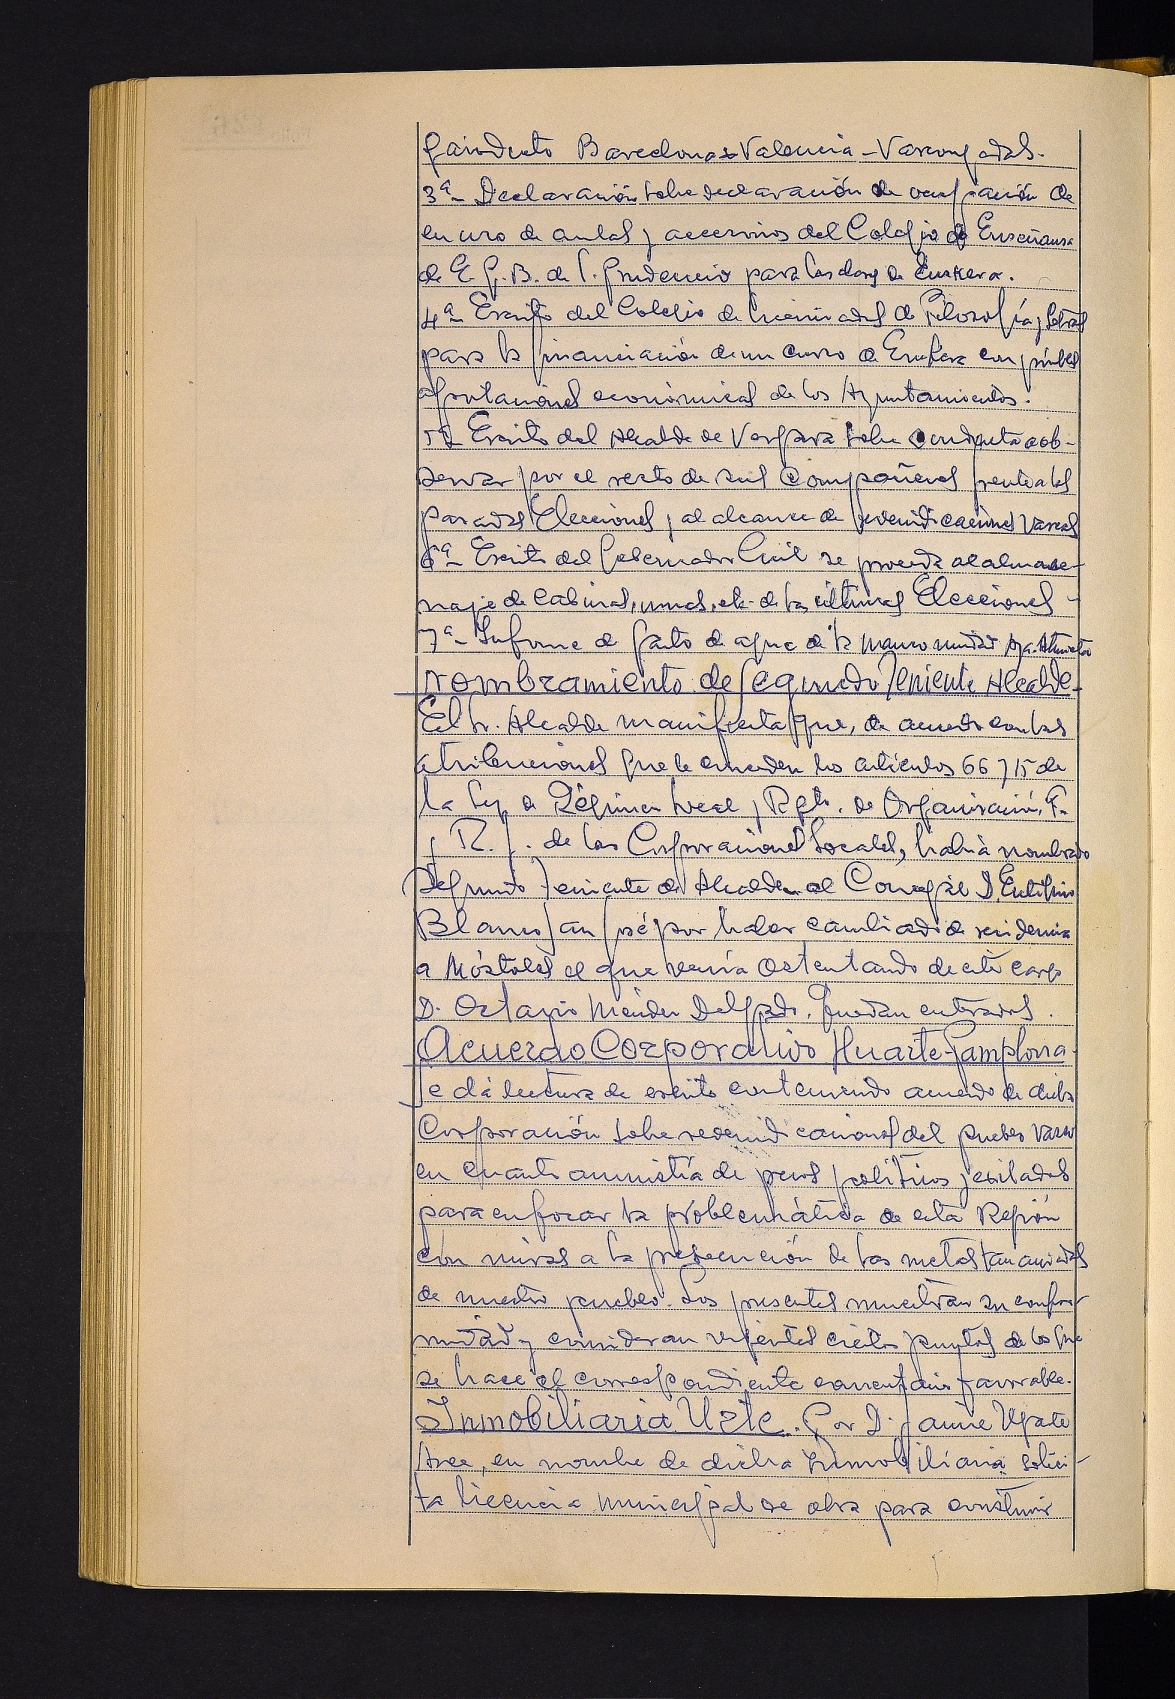 Gasoducto Barcelona-Valencia-Vascongadas.
3ª- Declaración sobre declaración de ocupación de
en uso de aulas y accesorios del Colegio de Enseñanza
de E.G.B. de S. Prudencio para las clases de Euskera.
4ª- Escrito del Colegio de Licenciados de Filosofía y Letras
para la financiación de un curso de Euskera con posibles
aportaciones económicas de los Ayuntamientos.
5ª- Escrito del Alcalde de Vergara sobre conducta a ob-
servar por el resto de sus Compañeros frente a las
pasadas Elecciones y al alcance de reivindicaciones Vascas
6ª- Escrito del Gobernador Civil se proceda al almace-
naje de cabinas, urnas, etc. de las últimas Elecciones-
7ª- Informe de gasto de agua de la mancomunidad
Nombramiento de Segundo Teniente Alcalde-
El Sr. Alcalde manifiesta que, de acuerdo con las
atribuciones que le conceden los artículos 66 y 15 de
la Ley de Régimen Local y Rgto. de Organización, F.
y R. J. de las Corporaciones Locales, había nombrado
Segundo Teniente de Alcalde al Concejal D. Eutiquio
Blanco San José por haber cambiado de residencia
a Móstoles el que venía ostentando de este cargo
D. Octavio Méndez Delgado. Quedan enterados.
Acuerdo Corporativo Huarte-Pamplona-
Se dá lectura de escrito conteniendo acuerdo de dicha
Corporación sobre reivindicaciones del pueblo vasco
en cuanto amnistía de presos políticos y exilados
para enfocar la problemática de esta Región
con miras a la prosecución de las metas tan ansiadas
de nuestro pueblo. Los presentes muestran su confor-
midad y consideran vigentes ciertos puntos de los que
se hace el correspondiente comentario favorable.
Inmobiliaria Uzte. Por D. Jaime Ugarte
Arce, en nombre de dicha Inmobiliaria solici-
ta licencia municipal de obra para construir